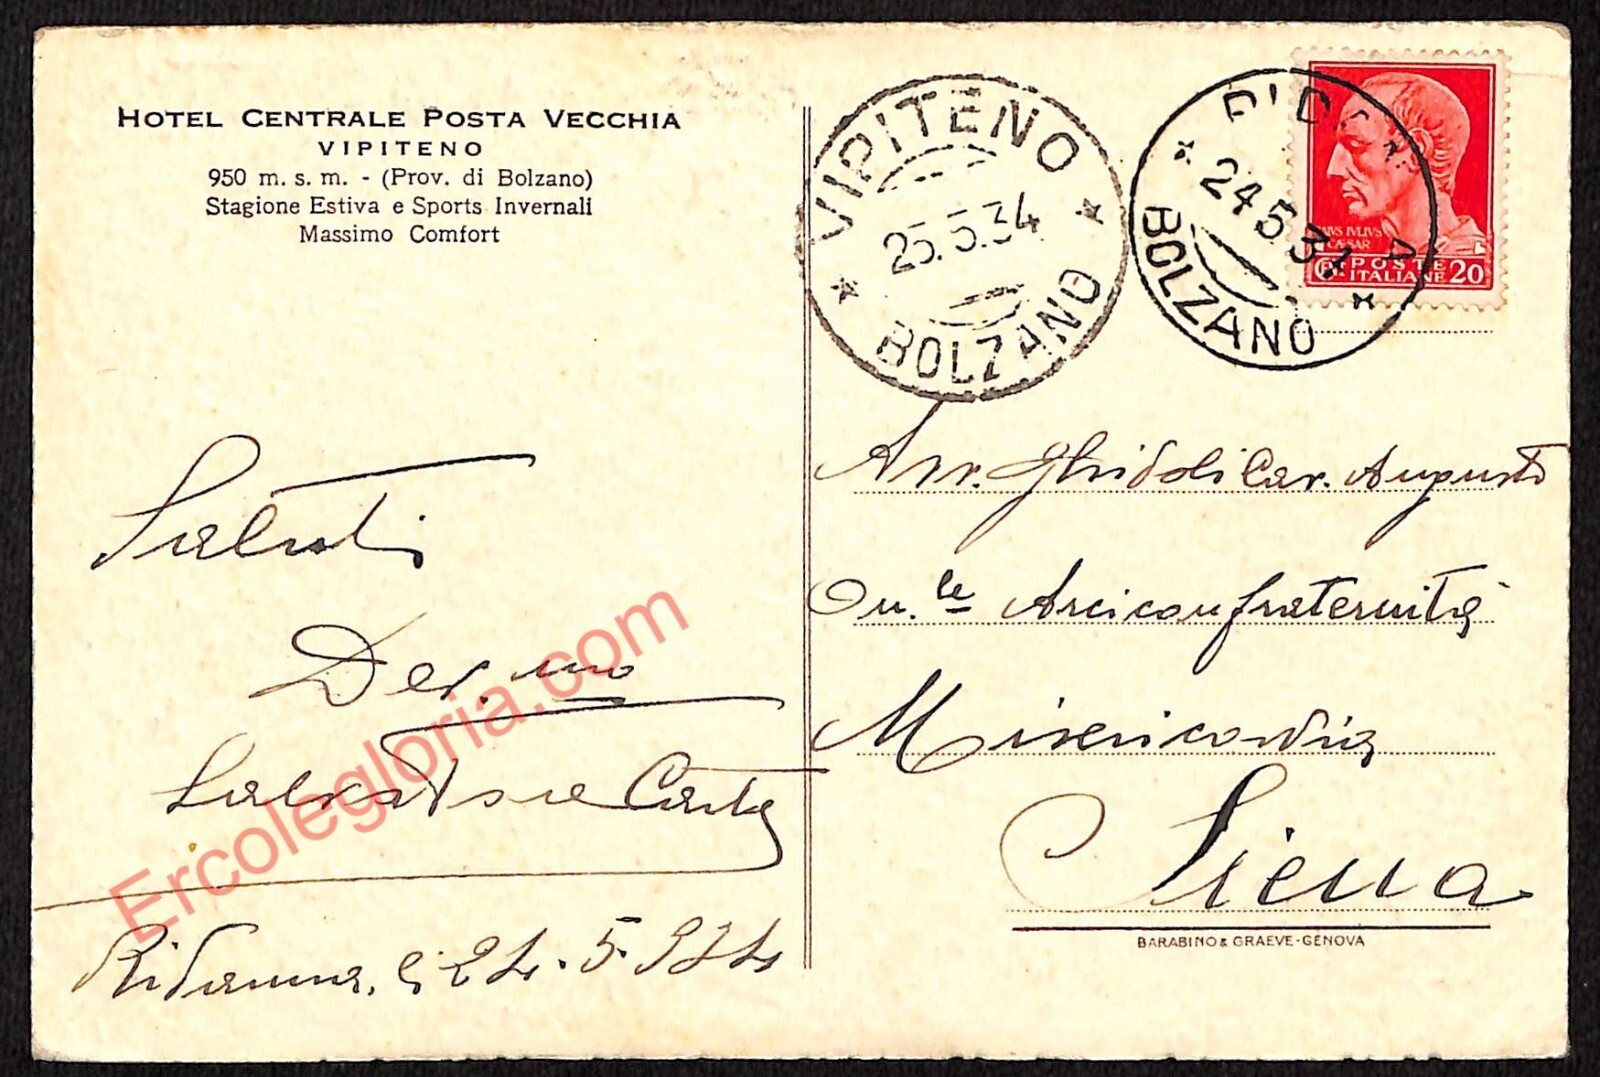 HOTEL CENTRALE POSTA VECCHIA
VIPITENO
950 m. s. m. - (Prov. di Bolzano)
Stagione Estiva e Sports Invernali
Massimo Comfort
VIPITENO
25.5.34
BOLZANO
24 5 34
BOLZANO
IVLIVS
CÆSAR
POSTE
ITALIANE 20
Saluti
Dev.mo
Salvatore Carta
Ridanna, li 24.5.934
Avv. Ghidoli Cav. Augusto
On.le Arciconfraternità
Misericordia
Siena
BARABINO & GRAEVE-GENOVA
Ercolegloria.com